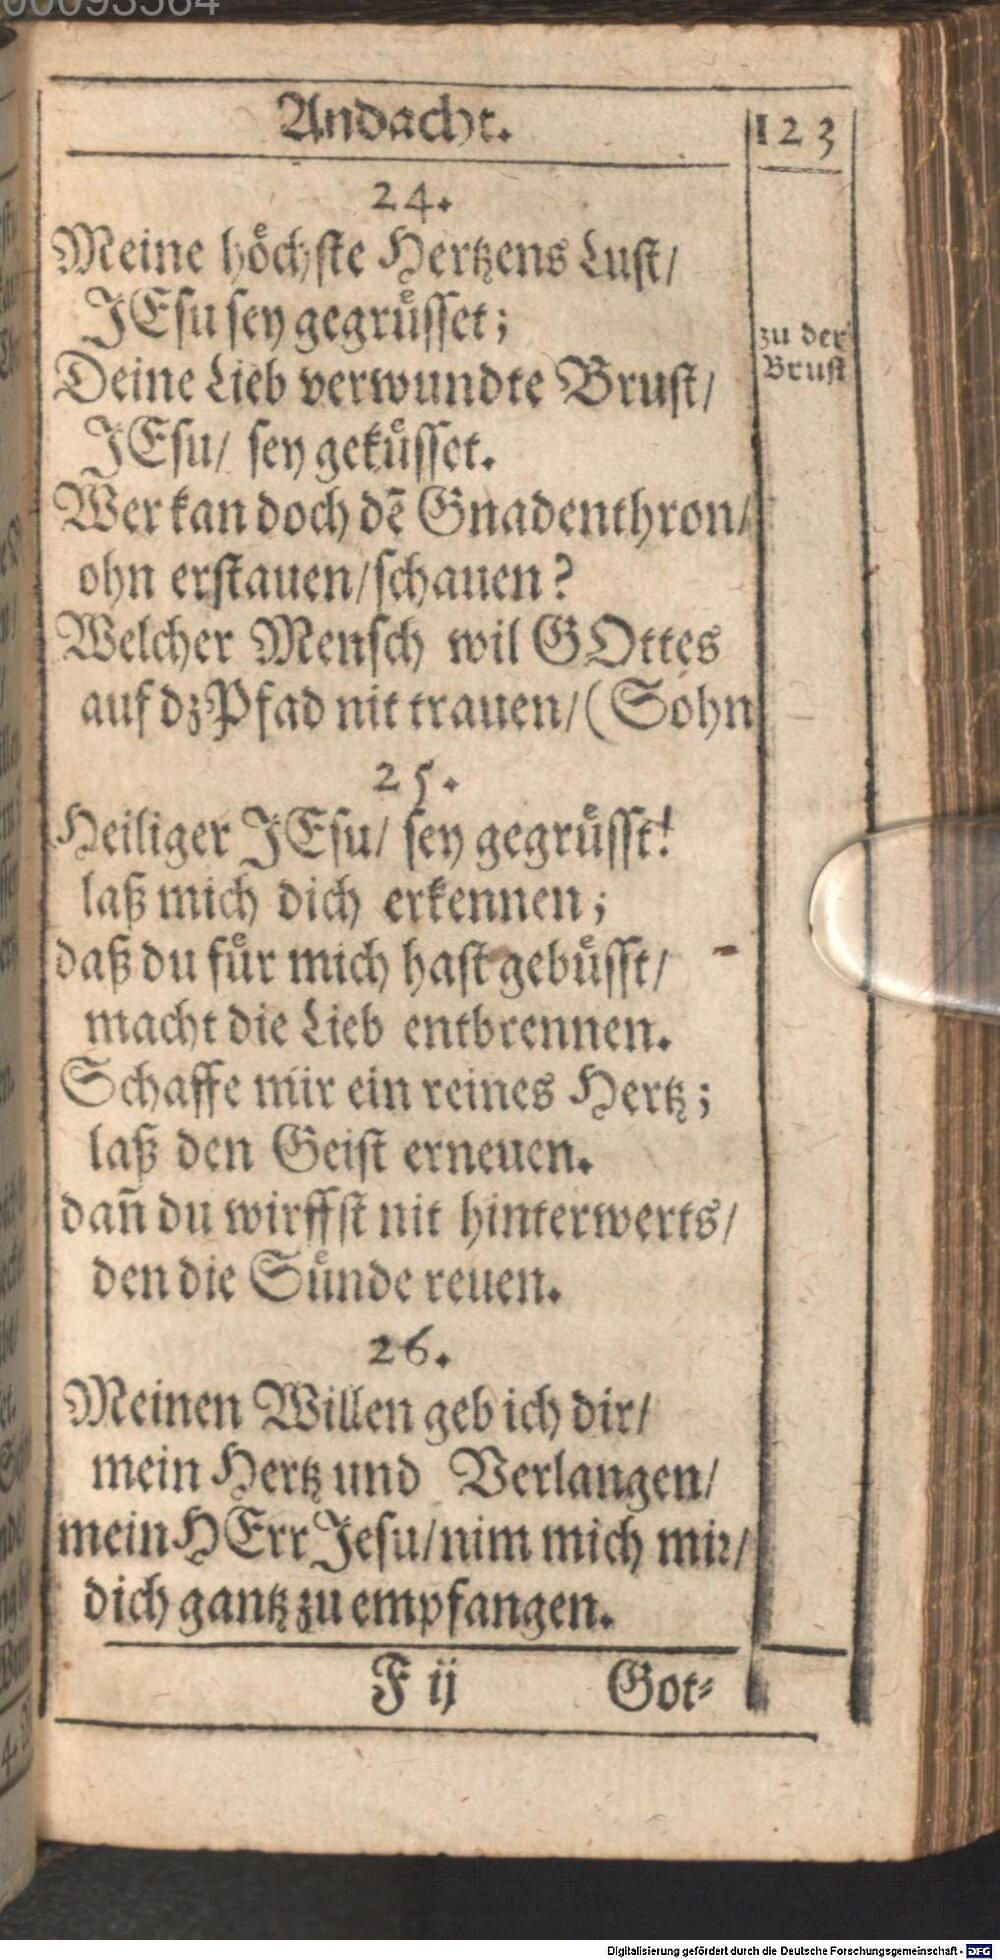 00093564
Andacht.
123
24.
Meine hoͤchſte Hertzens Luſt/
JEſu ſey gegruͤſſet;
zu der
Bruſt
Deine Lieb verwundte Bruſt/
JEſu/ ſey gekuͤſſet.
Wer kan doch dẽ Gnadenthron/
ohn erſtauen/ſchauen?
Welcher Menſch wil GOttes
auf dz Pfad nit trauen/(Sohn
25.
Heiliger JEſu/ ſey gegruͤſſt!
laß mich dich erkennen;
daß du fuͤr mich haſt gebuͤſſt/
macht die Lieb entbrennen.
Schaffe mir ein reines Hertz;
laß den Geiſt erneuen.
dan̄ du wirffſt nit hinterwerts/
den die Suͤnde reuen.
26.
Meinen Willen geb ich dir/
mein Hertz und Verlangen/
mein HErr Jeſu/nim mich miꝛ/
dich gantz zu empfangen.
F ij
Got⸗
Digitalisierung gefördert durch die Deutsche Forschungsgemeinschaft - DFG